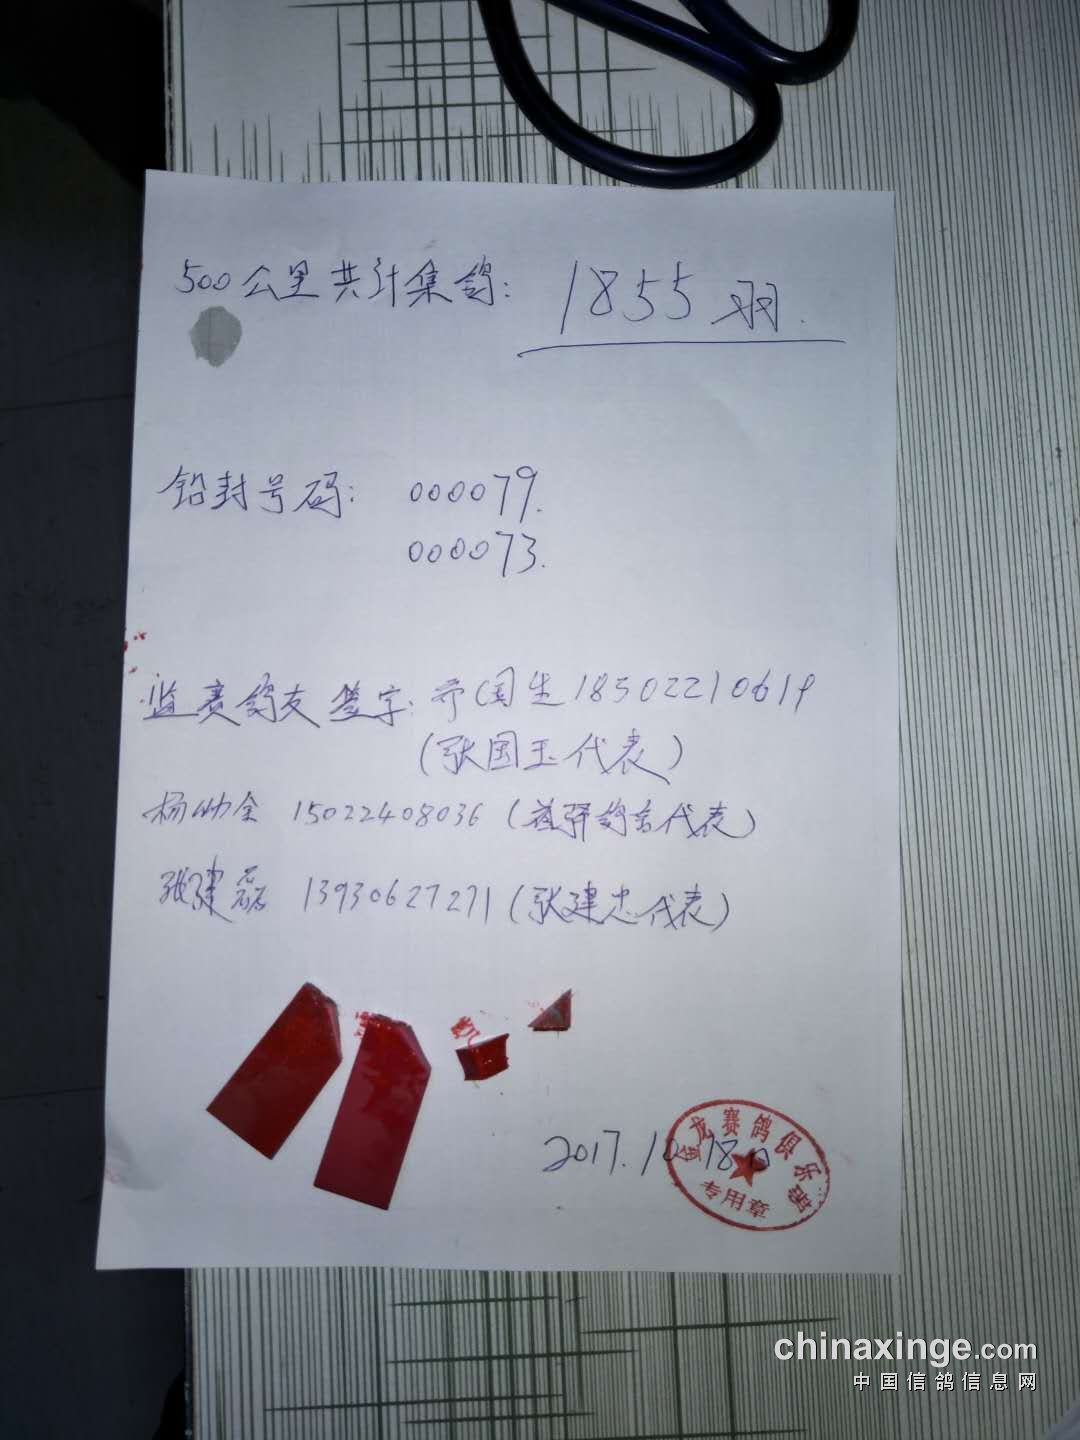 500公里共计集鸽: 1855羽.
铅封号码: 000079.
000073.
监赛鸽友签字: 乔国生 18502210619
(张国玉代表)
杨帅全 15022408036 (鸽舍代表)
张建磊 13930627271 (张建忠代表)
2017.10.18日
金龙赛鸽俱乐部
专用章
chinaxinge.com
中国信鸽信息网